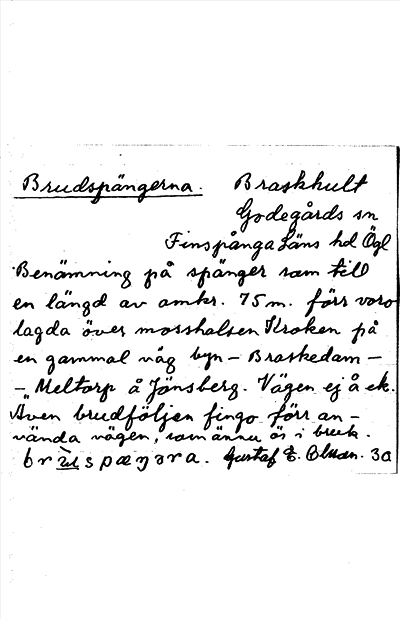 Brudspängerna. Braskhult
Godegårds sn
Finspånga Läns hd Ögl
Benämning på spänger som till
en längd av omkr. 75 m. förr voro
lagda över mosshalsen Kroken på
en gammal väg byn - Braskedam -
- Meltorp å Jönsberg. Vägen ej å ek.
Även brudföljen fingo förr an-
vända vägen, som ännu är i bruk.
Gustaf E. Olsson. 30